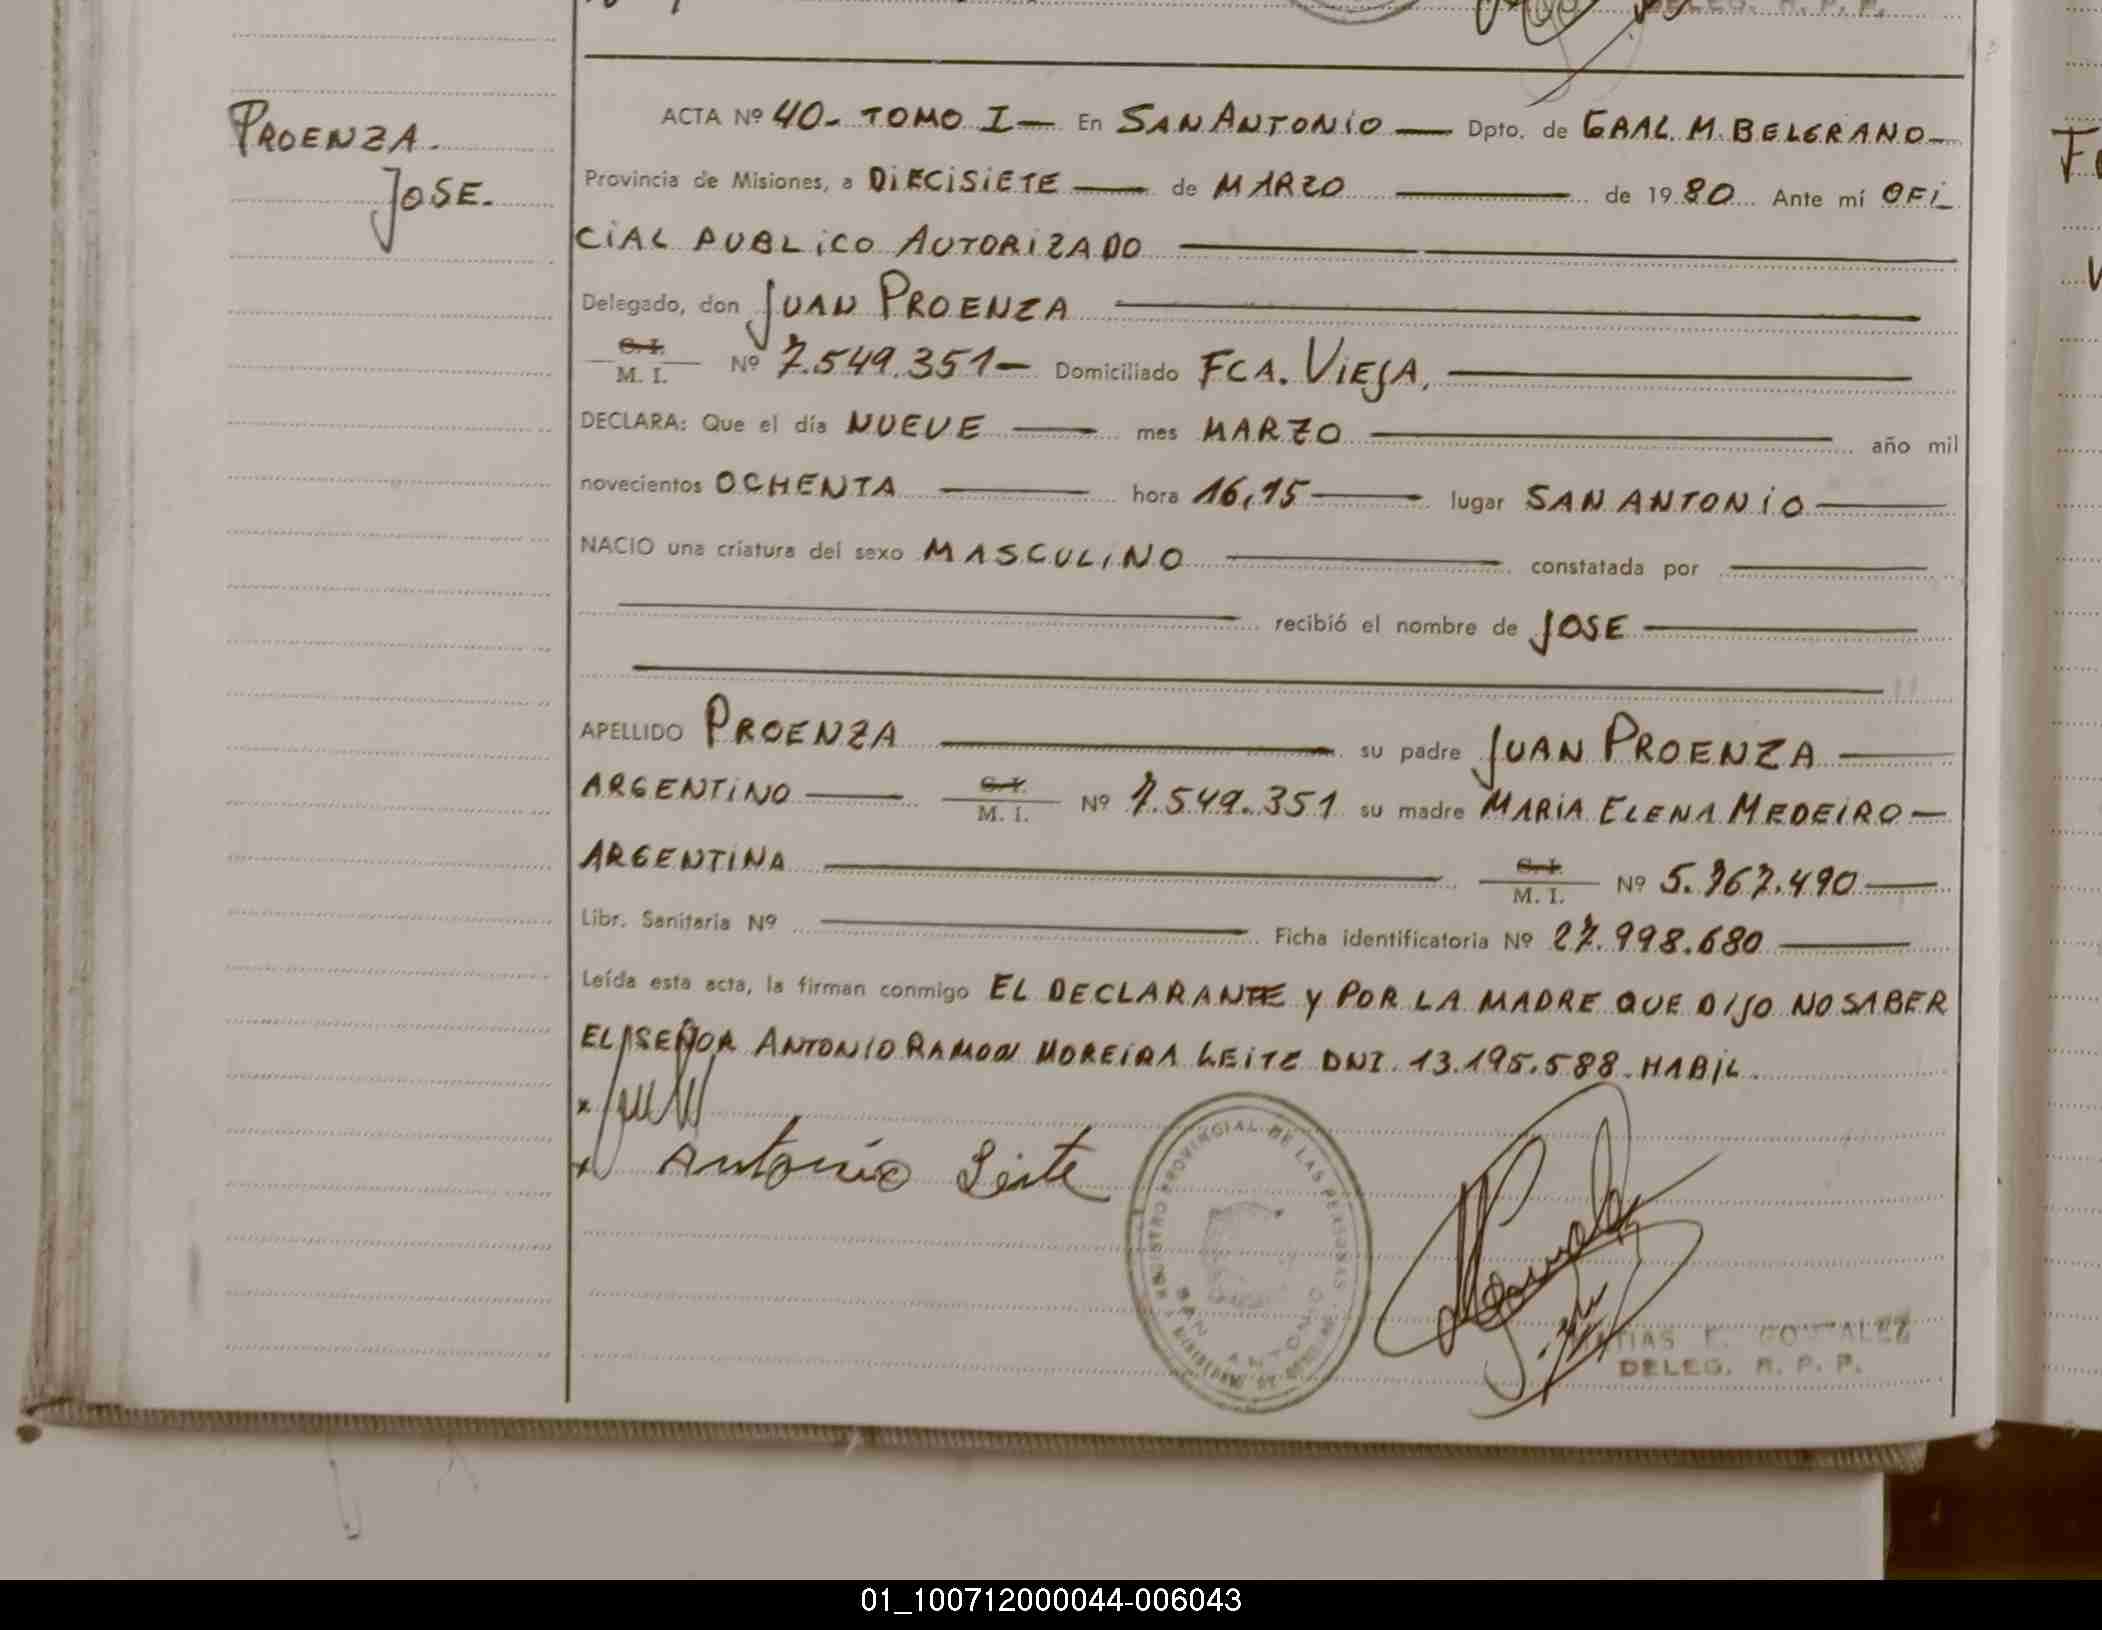 DELEG. R. P. P.
PROENZA.
JOSE.
ACTA Nº 40- TOMO I — En SAN ANTONIO — Dpto. de GRAL. M. BELGRANO —
Provincia de Misiones, a DIECISIETE — de MARZO — de 1980 Ante mí OFI
CIAL PUBLICO AUTORIZADO —
Delegado, don JUAN PROENZA —
C. I.
M. I. Nº 7.549.351 — Domiciliado FCA. VIEJA, —
DECLARA: Que el día NUEVE — mes MARZO — año mil
novecientos OCHENTA — hora 16,15 — lugar SAN ANTONIO —
NACIO una criatura del sexo MASCULINO — constatada por —
— recibió el nombre de JOSE —
APELLIDO PROENZA — su padre JUAN PROENZA —
ARGENTINO — C. I. M. I. Nº 7.549.351 su madre MARIA ELENA MEDEIRO —
ARGENTINA — C. I. M. I. Nº 5.767.490 —
Libr. Sanitaria Nº — Ficha identificatoria Nº 27.998.680 —
Leída esta acta, la firman conmigo EL DECLARANTE y POR LA MADRE QUE DIJO NO SABER
EL SEÑOR ANTONIO RAMON MOREIRA LEITE DNI. 13.195.588. HABIL.
x
x Antonio Leite
REGISTRO PROVINCIAL DE LAS PERSONAS
SAN ANTONIO
MATIAS E. GONZALEZ
DELEG. R. P. P.
01_100712000044-006043